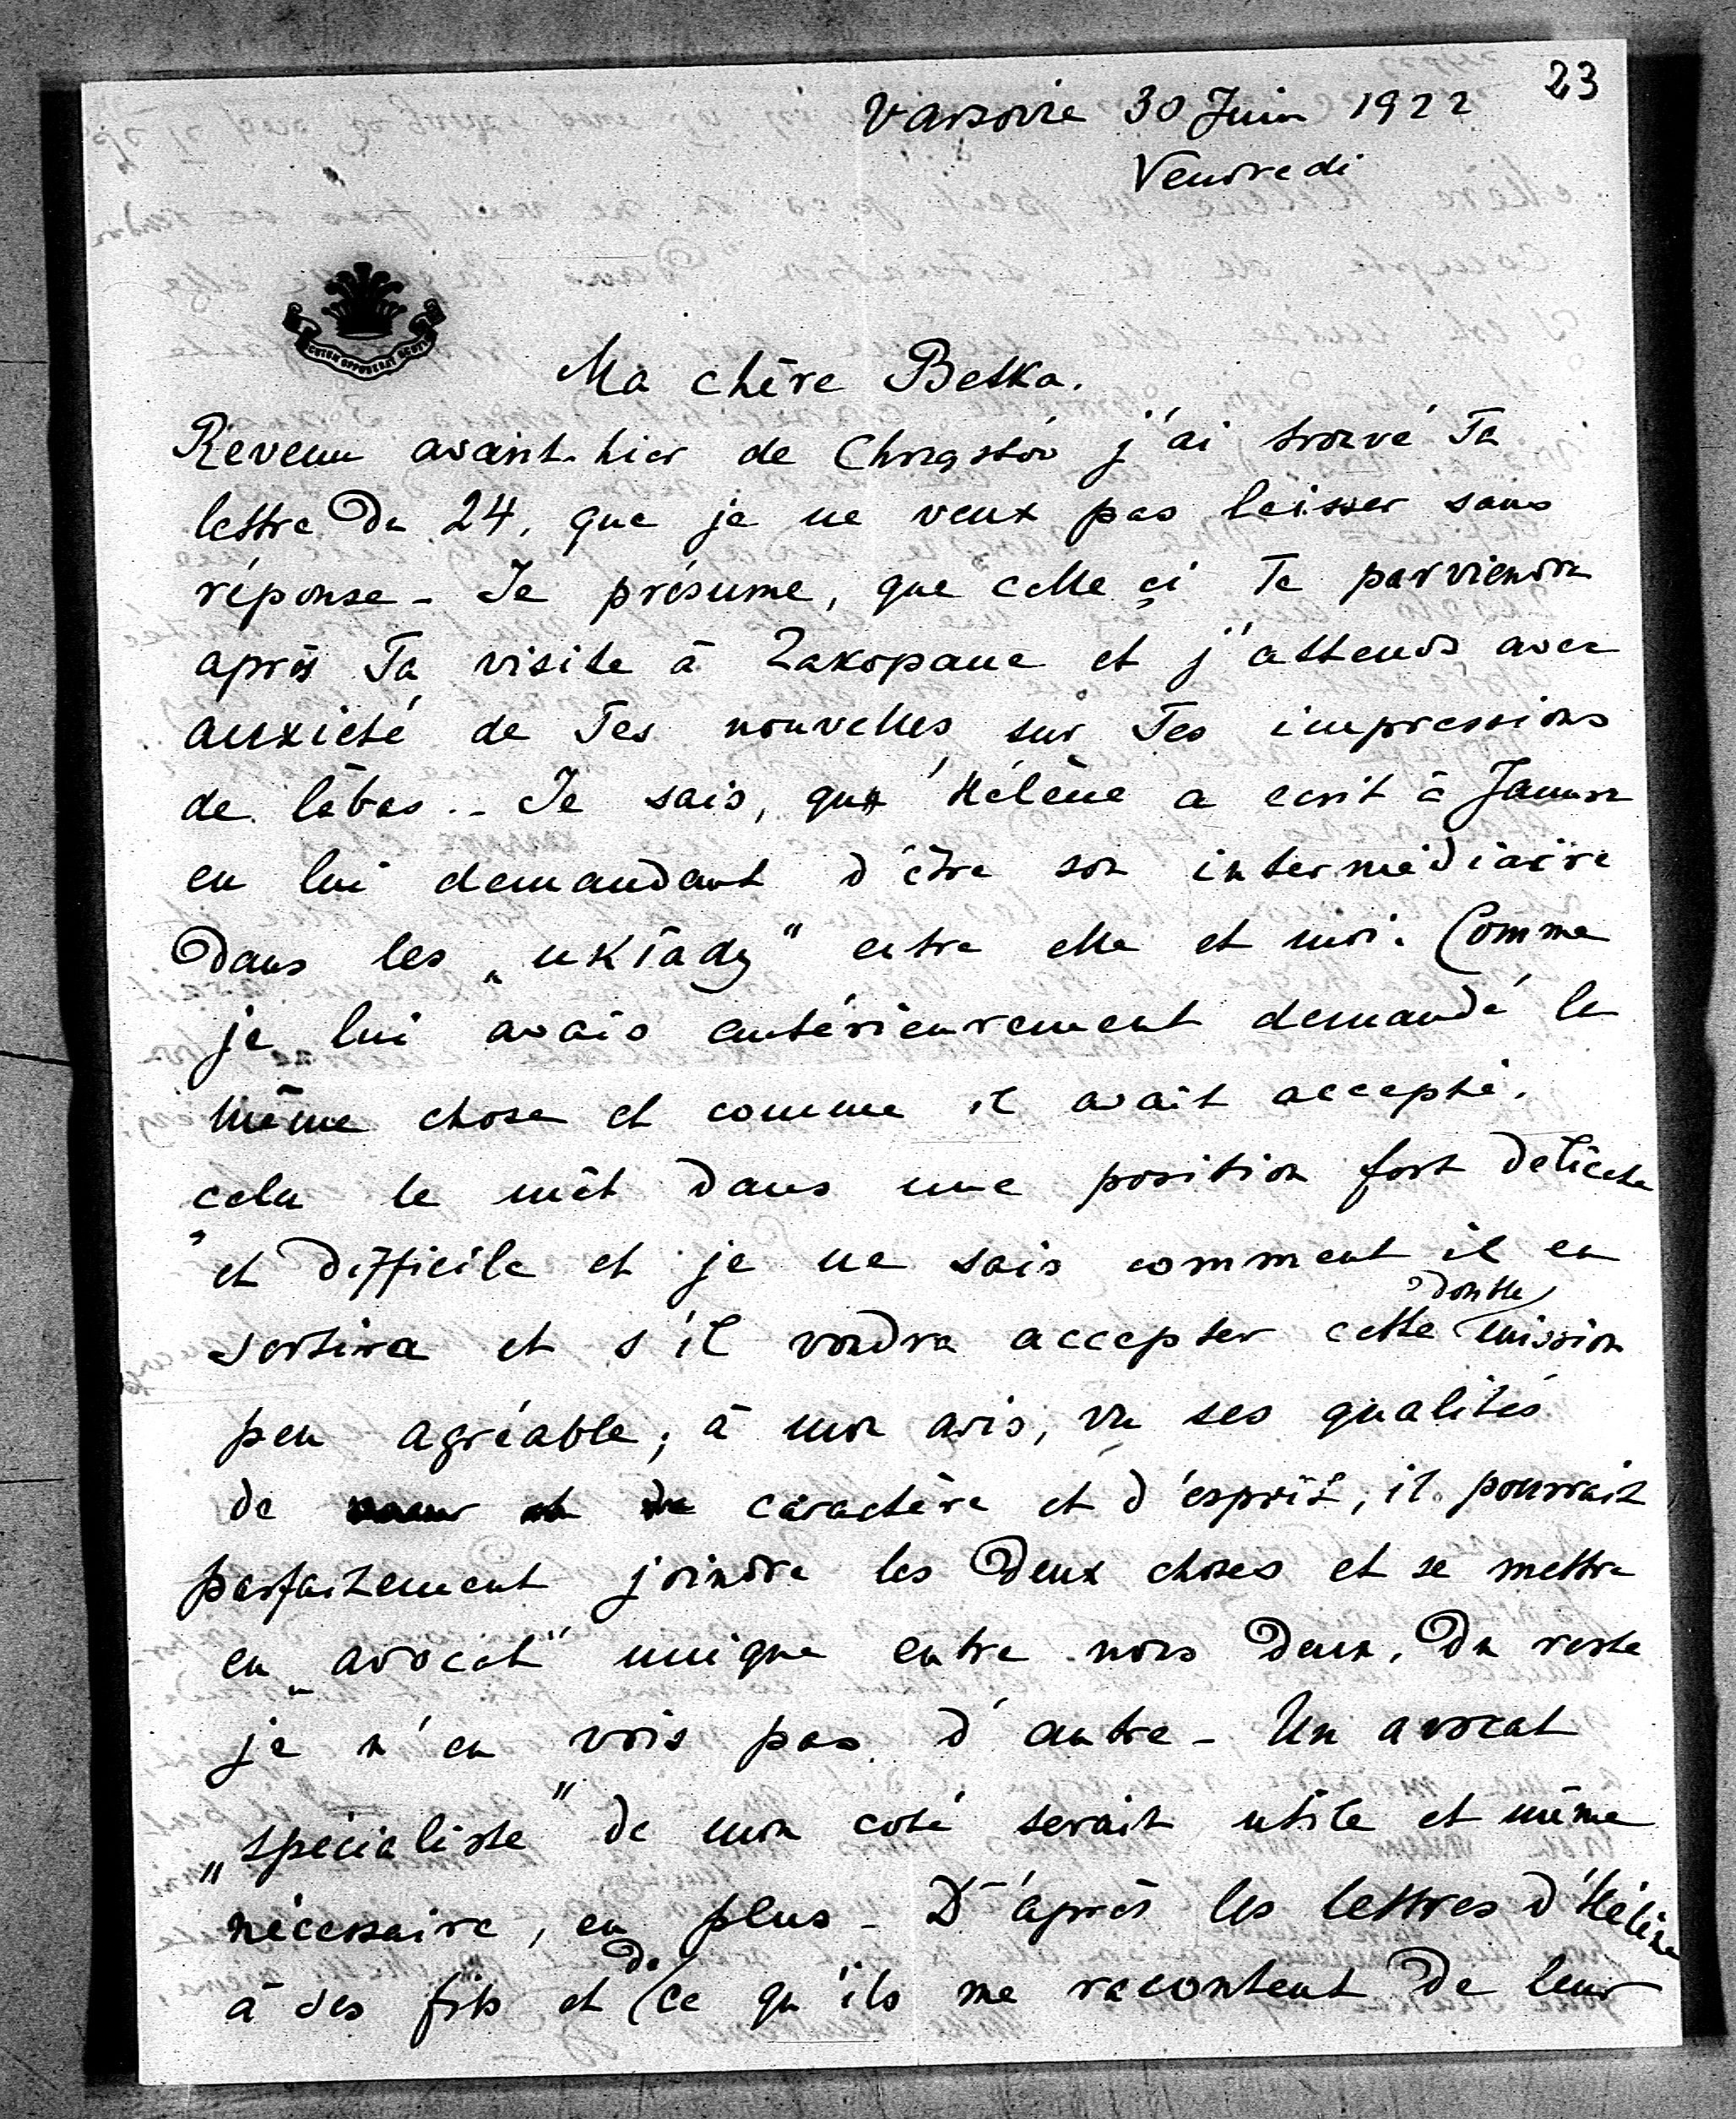 23
Varsovie 30 Juin 1922
Vendredi
Ma chère Betka.
Revenu avant-hier de Chrząstów j'ai trouvé Ta
lettre du 24, que je ne veux pas laisser sans
réponse - Je présume, que celle ci Te parviendra
après Ta visite à Zakopane et j'attends avec
anxiété de Tes nouvelles sur Tes impressions
de làbas.. Je sais, que Hélène a ecrit à
en lui demandant d'être son intermédiaire
dans les „układy" entre elle et moi. Comme
je lui avais antérieurement demandé la
même chose et comme il avait accepté,
cela le mèt dans une position fort délicate
et difficile et je ne sais comment il en
sortira et s'il voudra accepter cette double mission
peu agréable; à mon avis, vu ses qualités
de caractère et d'esprit, il pourrait
parfaitement joindre les deux choses et se mettre
en „avocat" unique entre nous deux. Du reste
je n'en vois pas d'autre - Un avocat
„spécialiste" de mon coté serait utile et même
nécessaire, en plus - D'après les lettres d'Hélène
à ses fils et de ce qu'ils me racontent de leur